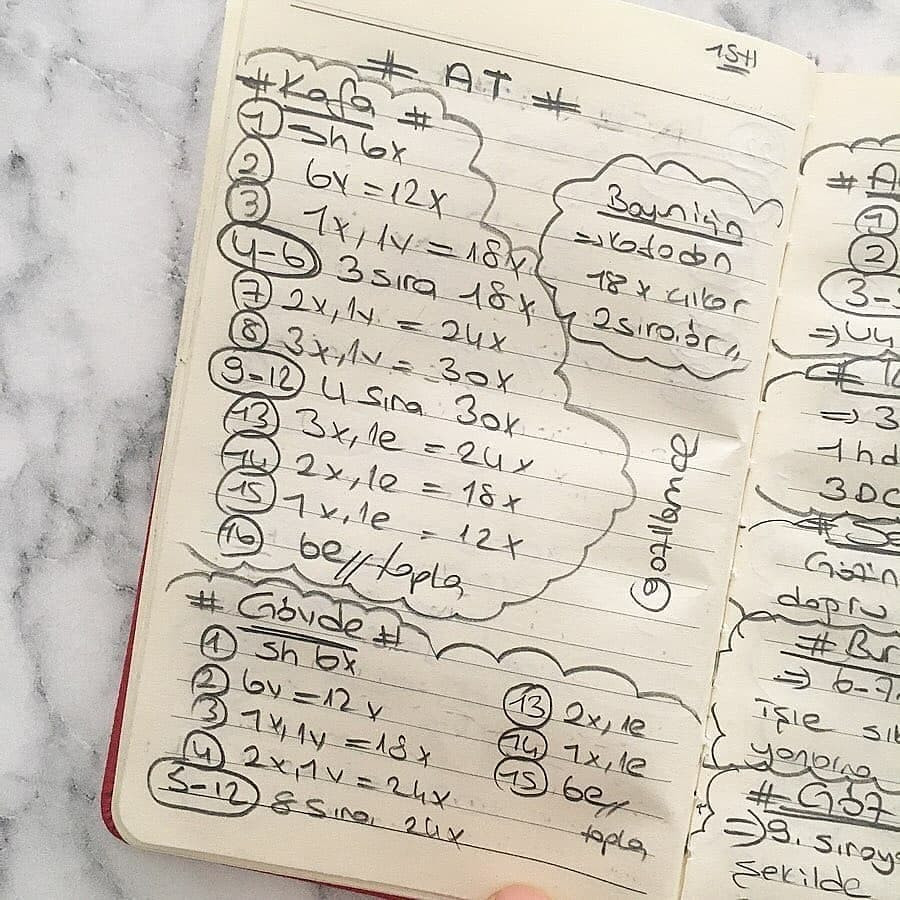 1SH
# AT #
# Kafa #
1 Sh 6x
2 6v = 12x
3 1x, 1v = 18x
4-6 3 sıra 18x
7 2x, 1v = 24x
8 3x, 1v = 30x
9-12 4 sıra 30x
13 3x, 1e = 24x
14 2x, 1e = 18x
15 1x, 1e = 12x
16 6e // topla
Boyniçin
=> kafadan
18x çıkar
2 sıra ör //
@ozllemce
# Gövde #
1 Sh 6x
2 6v = 12v
3 1x, 1v = 18x
4 2x, 1v = 24x
5-12 8 sıra 24x
13 2x, 1e
14 1x, 1e
15 6e //
topla
# A
1
2
3-
=> 44
#
=> 3
1 hd
3DC
#
Gözün
doğru
# Bur
=> 6-7
işle
yanına
# Göz
=> 9. sıraya
şekilde